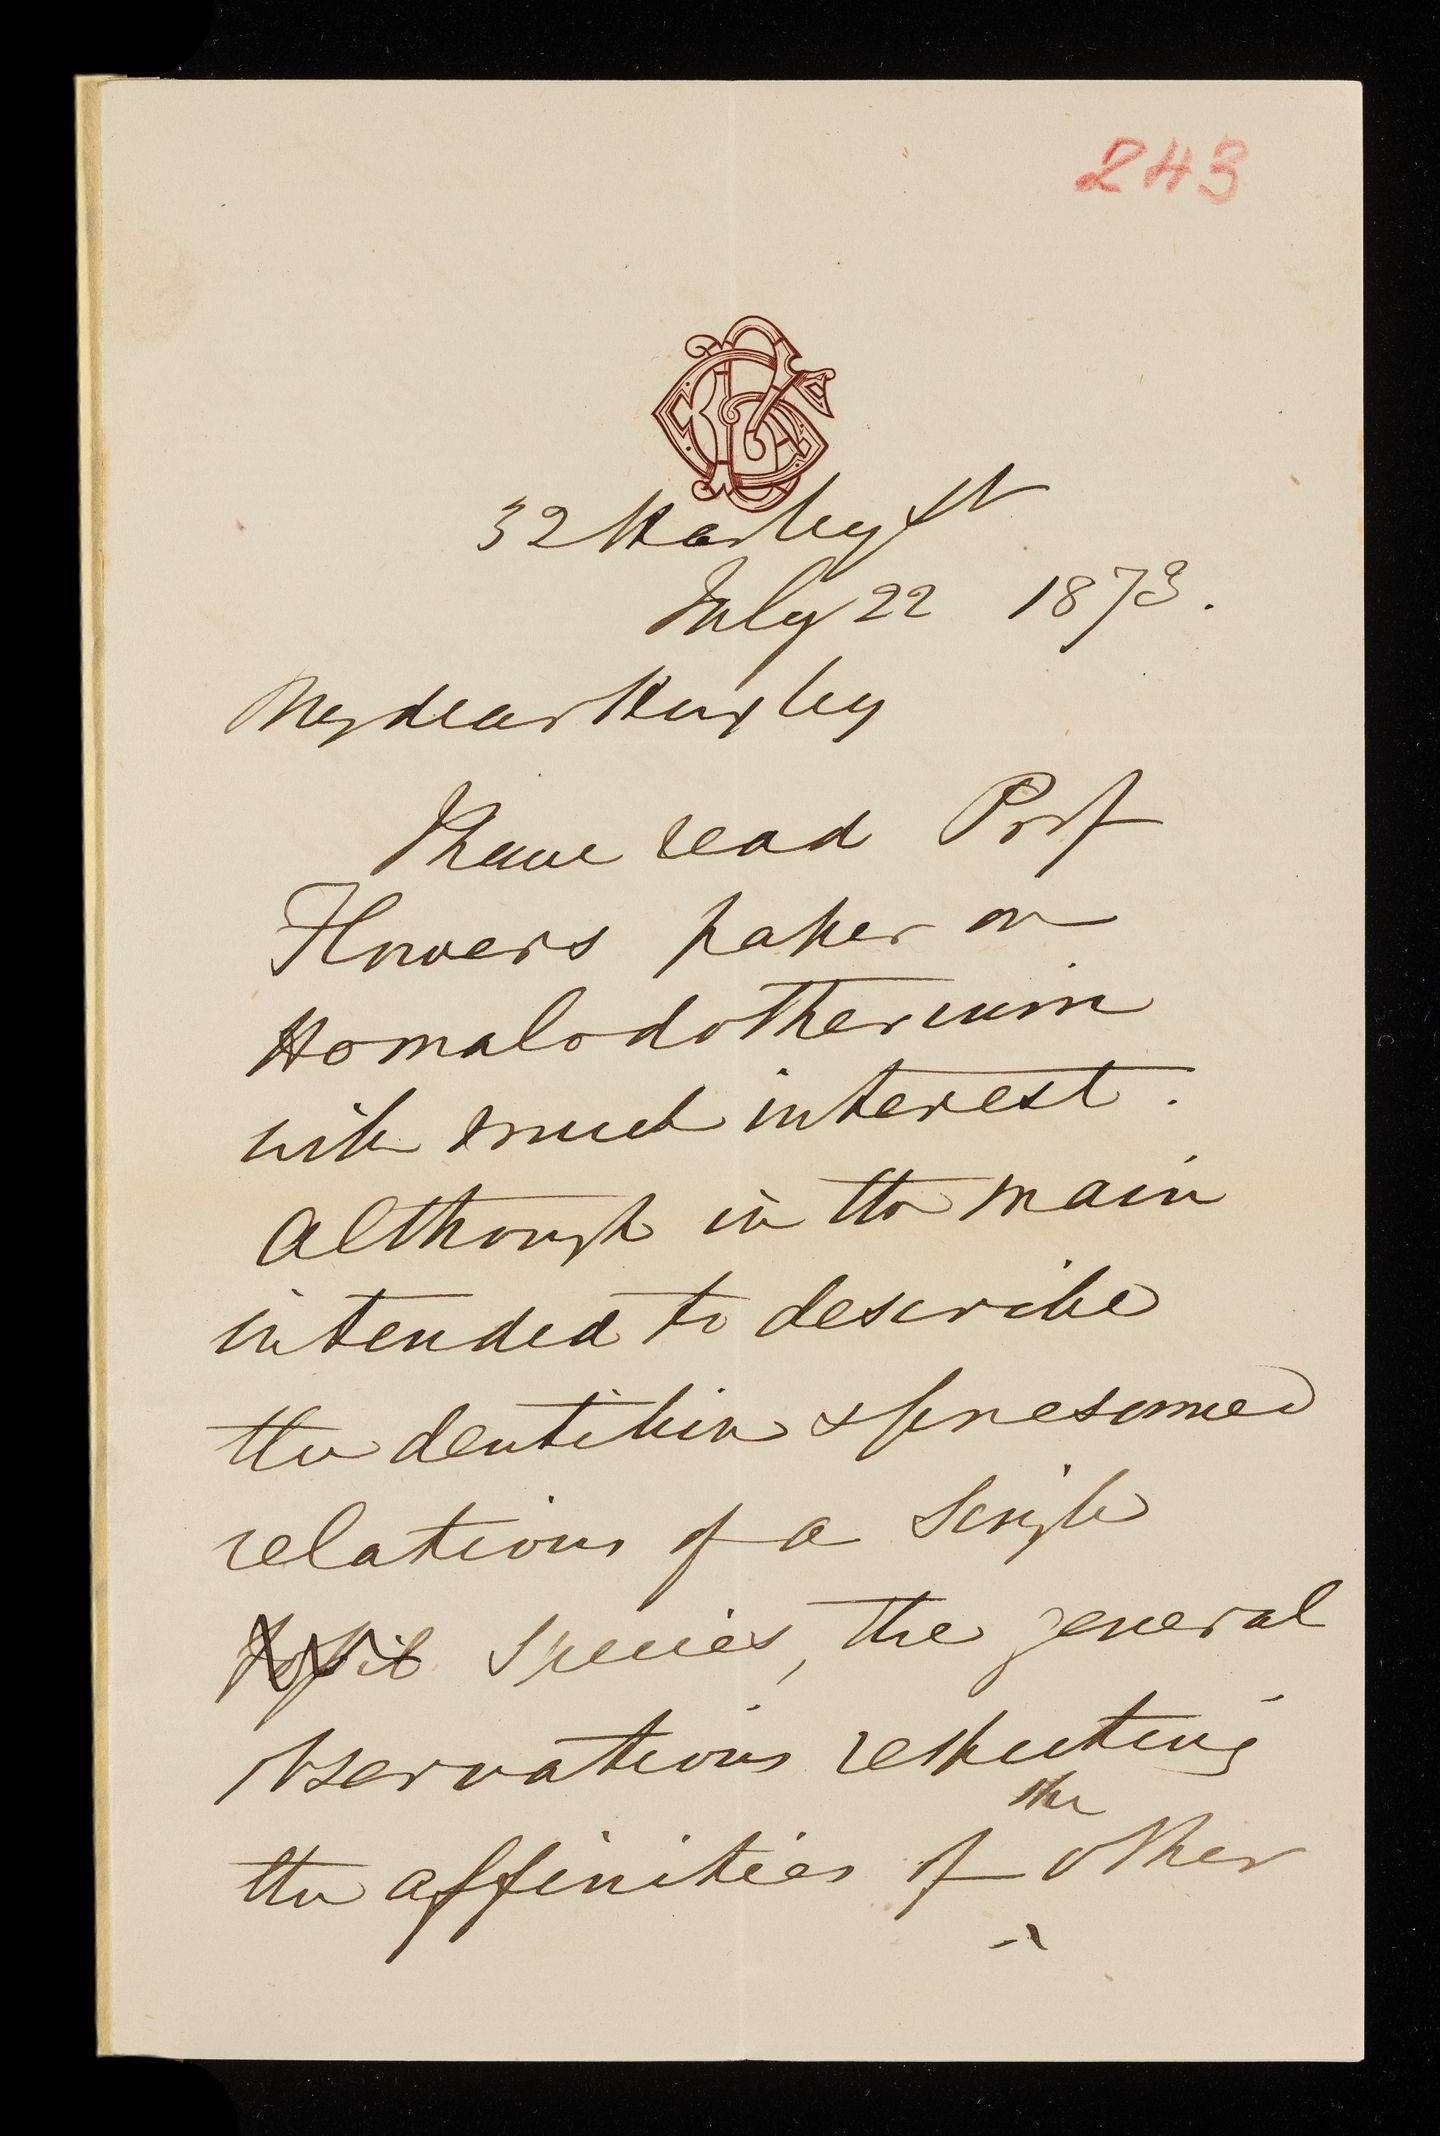 243
32 Harley St
July 22 1873.
My dear Huxley
I have read Prof
Flowers paper on
Homalodotherium
with much interest.
Although in the main
intended to describe
the dentition & presumed
relations of a single
fossil species, the general
observations respecting
the affinities of the other